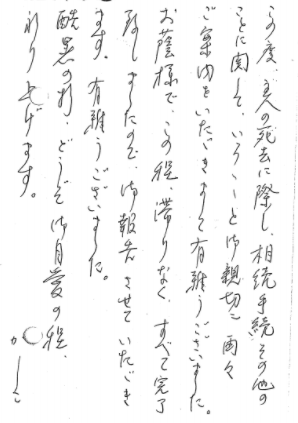 この度、主人の死去に際し、相続手続その他の
ことに関して、いろいろと御親切に
ご案内をいただきまして有難うございました。
お蔭様で、この程、滞りなく、すべて完了
致しましたので、御報告させていただき
ます。有難うございました。
酷暑の折、どうぞ御自愛の程、
祈り上げます。